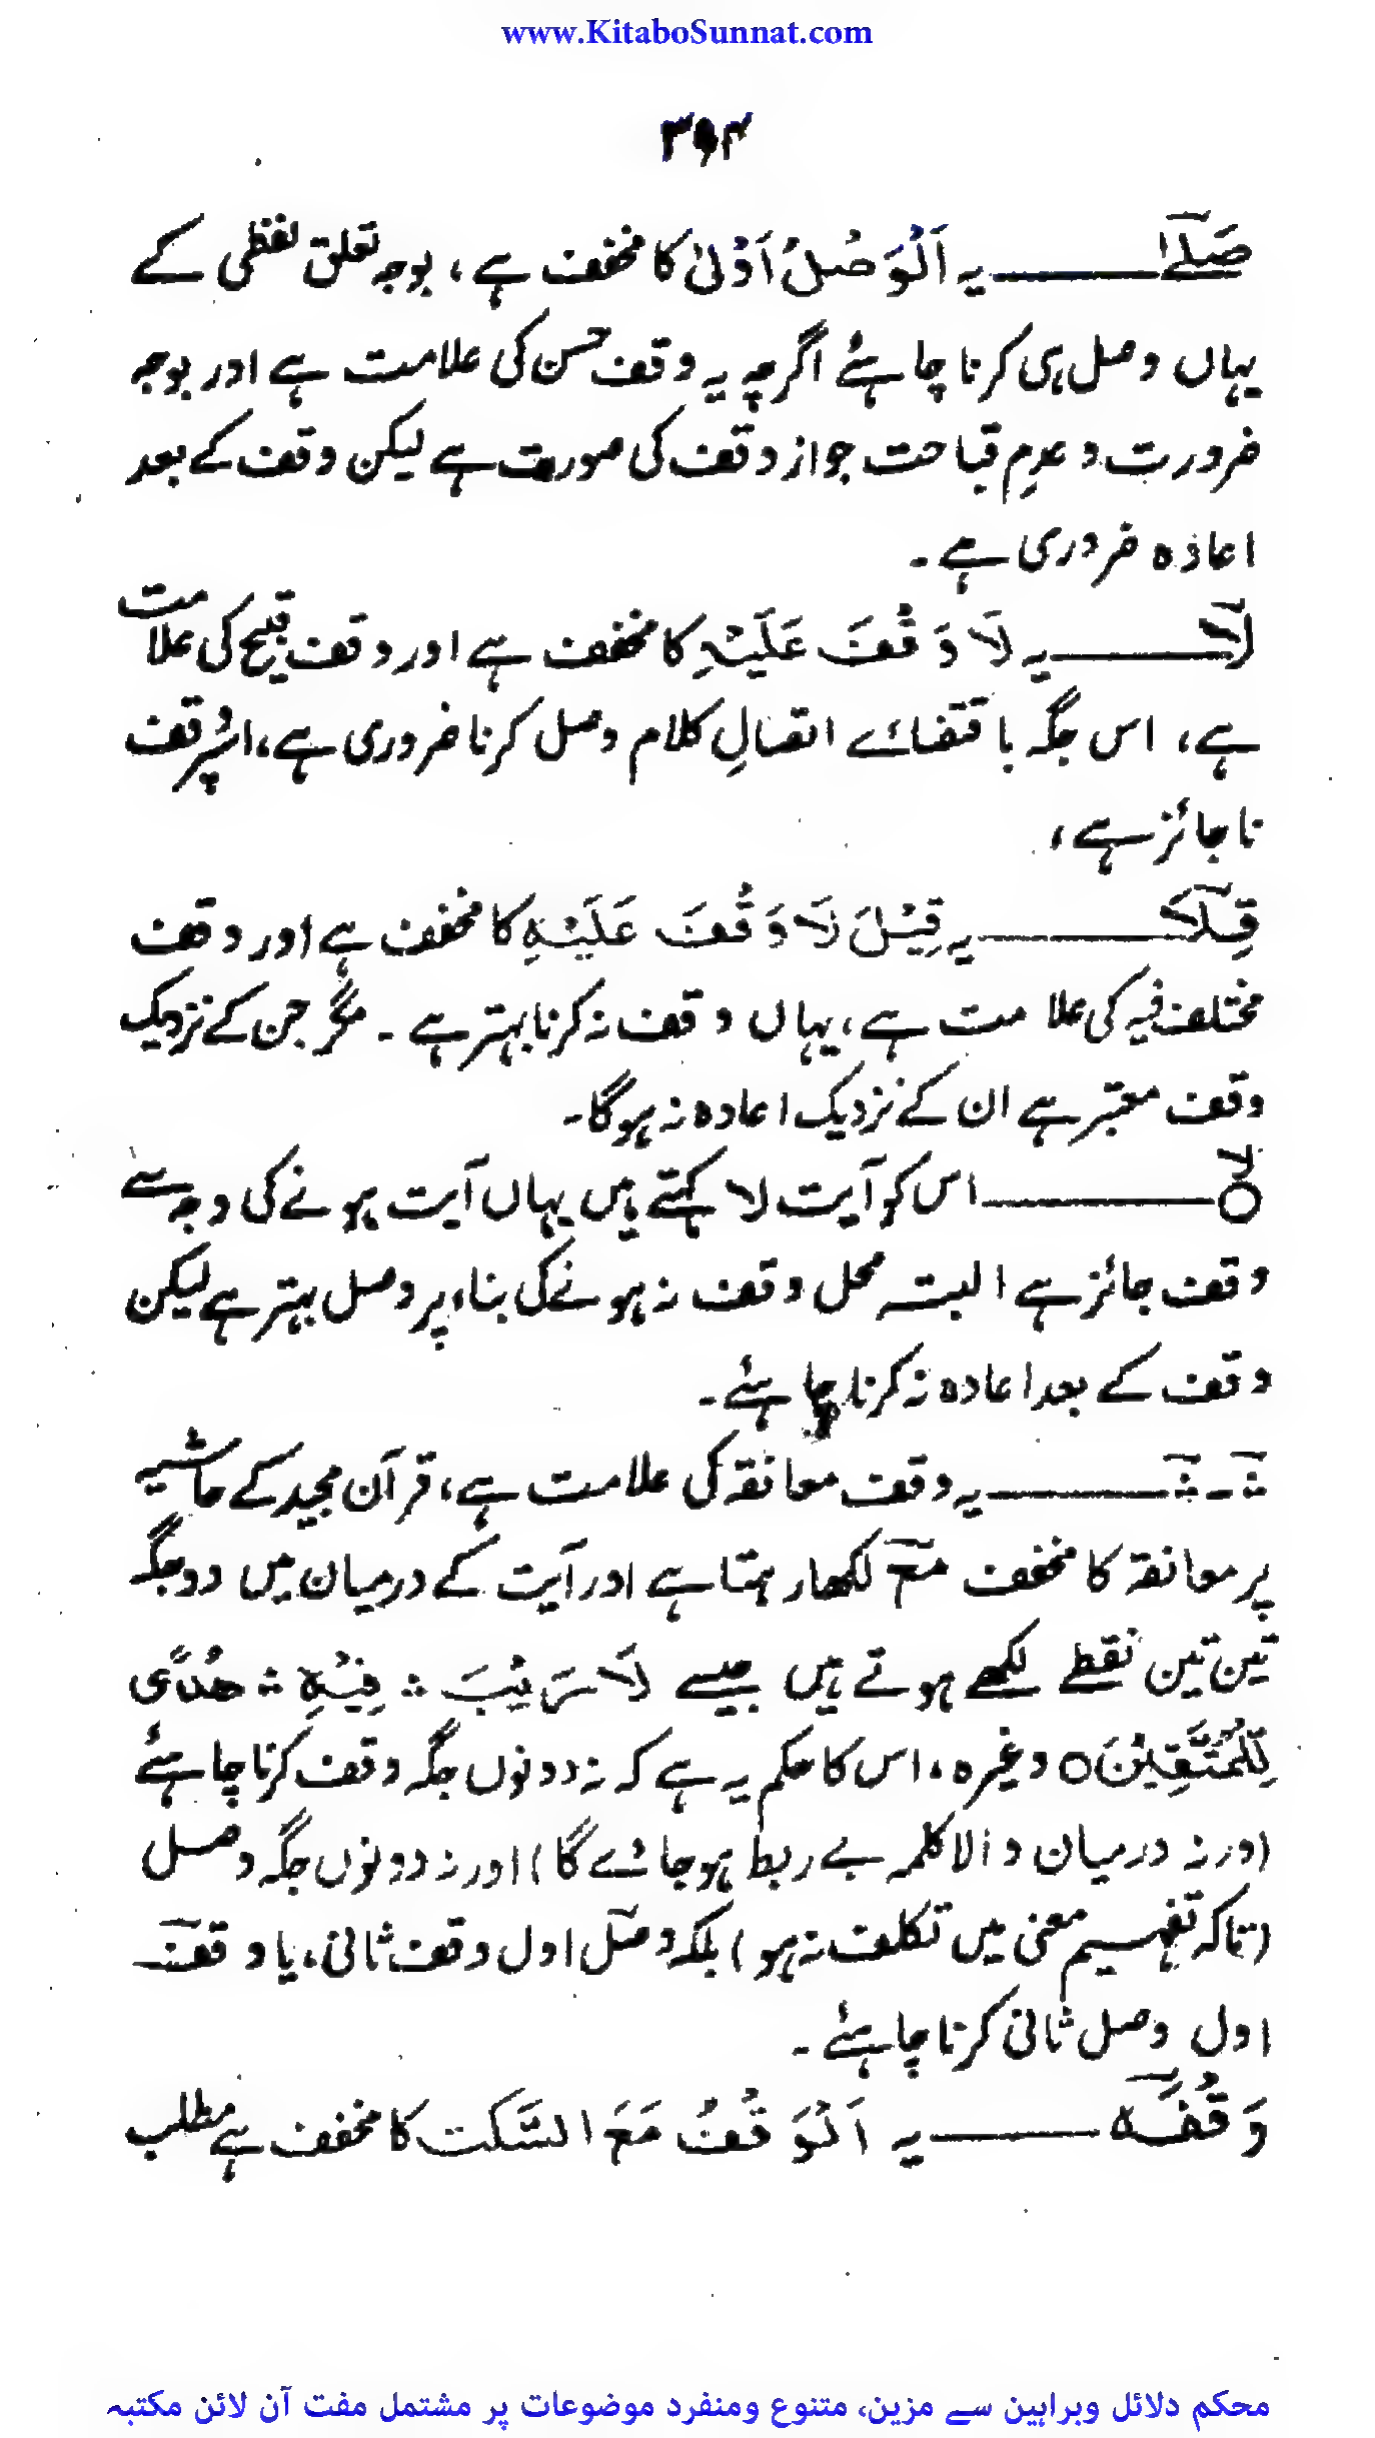 www.KitaboSunnat.com
صَلےٰ ـــــــ یہ اَلْوَصْلُ اَوْلیٰ کا مخفف ہے، بوجہ تعلق لفظی کے
یہاں وصل ہی کرنا چاہئے اگرچہ یہ وقف حسن کی علامت ہے اور بوجہ
ضرورت و عدمِ قباحت جواز وقف کی صورت ہے لیکن وقف کے بعد
اعادہ ضروری ہے۔
لآ ـــــــ یہ لَا وَقْفَ عَلَیْہِ کا مخفف ہے اور وقف قبیح کی علامت
ہے، اس جگہ باقتضائے اتصالِ کلام وصل کرنا ضروری ہے، اسپر وقف
ناجائز ہے،
قِلَا ـــــــ یہ قِیْلَ لَا وَقْفَ عَلَیْہِ کا مخفف ہے اور وقف
مختلف فیہ کی علامت ہے، یہاں وقف نہ کرنا بہتر ہے۔ مگر جن کے نزدیک
وقف معتبر ہے ان کے نزدیک اعادہ نہ ہوگا۔
ۙ○ ـــــــ اس کو آیت لا کہتے ہیں یہاں آیت ہونے کی وجہ سے
وقف جائز ہے البتہ محل وقف نہ ہونے کی بناء پر وصل بہتر ہے لیکن
وقف کے بعد اعادہ نہ کرنا چاہئے۔
ۛ ـ ۛ ـــــــ یہ وقف معانقہ کی علامت ہے، قرآن مجید کے حاشیہ
پر معانقہ کا مخفف مع لکھا رہتا ہے اور آیت کے درمیان میں دو جگہ
تین تین نقطے لکھے ہوتے ہیں جیسے لَا رَیْبَ ۛ فِیْہِ ۛ ھُدًی
لِّلْمُتَّقِیْنَ○ وغیرہ، اس کا حکم یہ ہے کہ نہ دونوں جگہ وقف کرنا چاہئے
(ورنہ درمیان والا کلمہ بے ربط ہو جائے گا) اور نہ دونوں جگہ وصل
(تاکہ تفہیم معنی میں تکلف نہ ہو) بلکہ وصل اول وقف ثانی، یا وقف
اول وصل ثانی کرنا چاہئے۔
وَقْفَہ ـــــــ یہ اَلْوَقْفُ مَعَ السَّکت کا مخفف ہے مطلب
محکم دلائل وبراہین سے مزین، متنوع ومنفرد موضوعات پر مشتمل مفت آن لائن مکتبہ